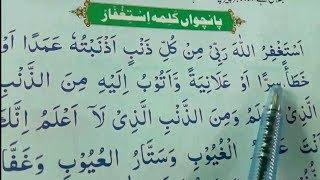 پانچواں کلمہ اِسْتِغْفَار
اَسْتَغْفِرُ اللّٰهَ رَبِّیْ مِنْ كُلِّ ذَنْۢبٍ اَذْنَبْتُهٗ عَمَدًا اَوْ
خَطَأً سِرًّا اَوْ عَلَانِیَةً وَّاَتُوْبُ اِلَیْهِ مِنَ الذَّنْۢبِ
الَّذِیْ اَعْلَمُ وَمِنَ الذَّنْۢبِ الَّذِیْ لَاۤ اَعْلَمُ اِنَّكَ
اَنْتَ الْغُیُوْبِ وَسَتَّارُ الْعُیُوْبِ وَغَفَّا